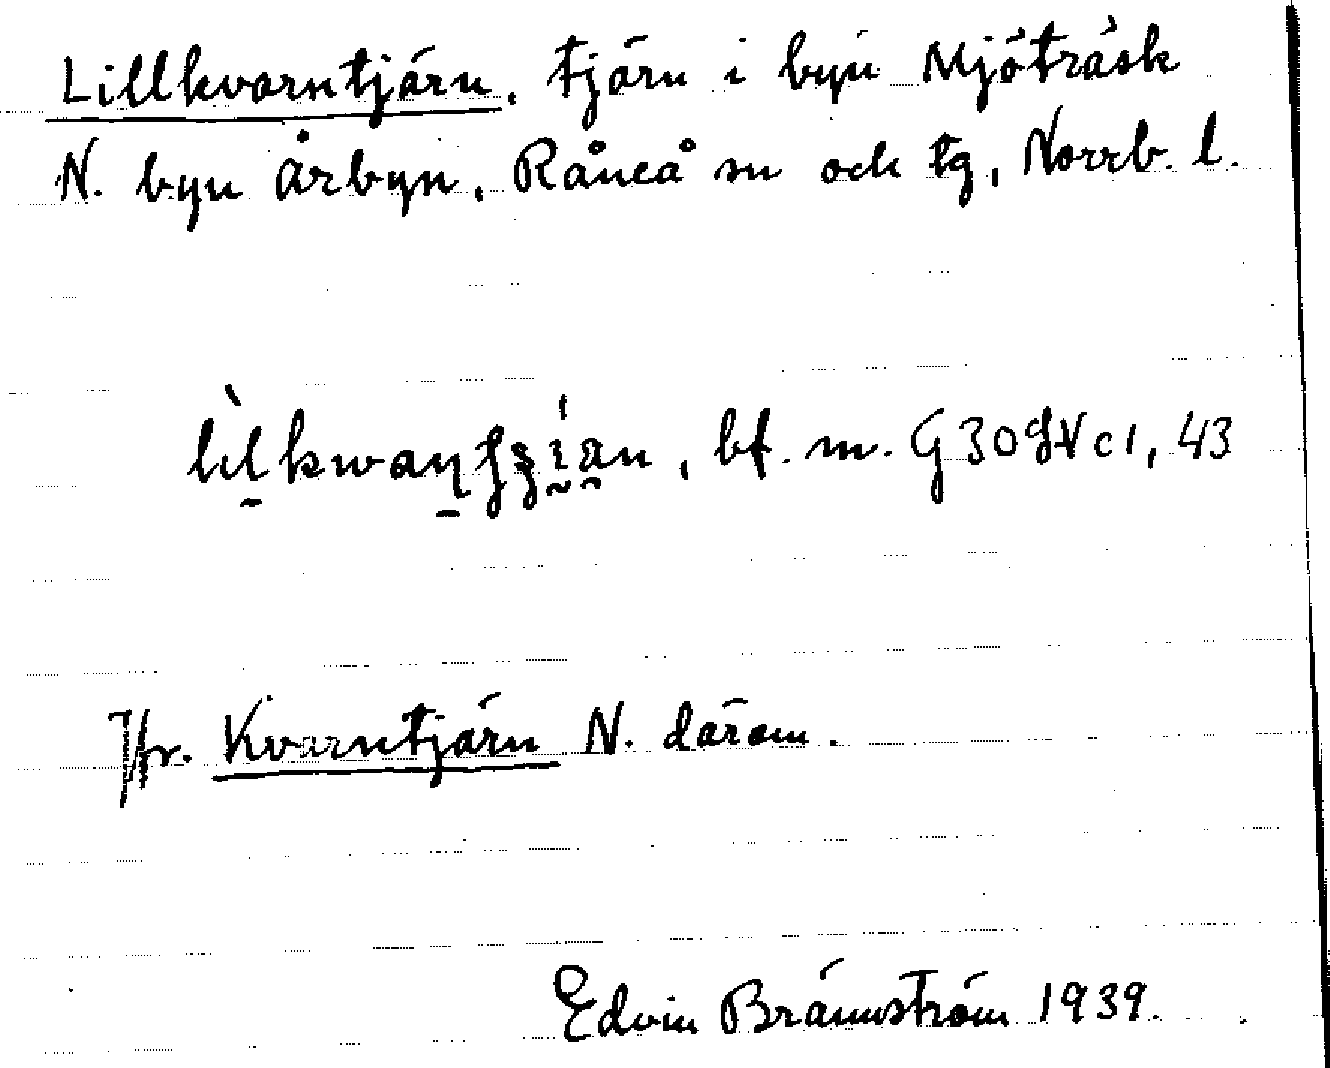 Lillkvarntjärn, tjärn i byn Mjöträsk
N. byn Årbyn, Råneå sn och tg, Norrb. l.
bf. m. G 30
43
Jfr. Kvarntjärn N. därom.
Edvin Brännström 1939.